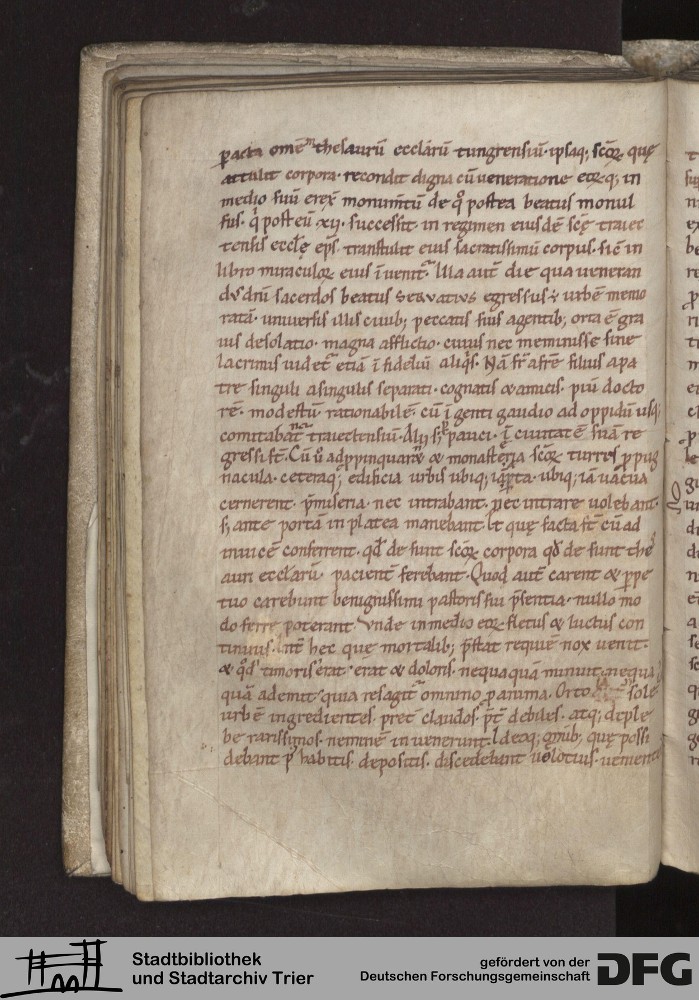 pacta omnē thesaurū ecclarū tungrensiū. ipsaq; scōꝝ quę
attulit corpora. recondit digna cū ueneratione eorq; in
medio suū erex̄ monum̄tū de qͦ postea beatus monul
fus. qͥ post eū xii. successit in regimen eiusdē scę̄ traiec
tensis eccłę ep̄s. transtulit eius sacratissimū corpus. sic̄ in
libro miraculoꝝ eius īuenit᷑. Illa aut̄ die qua ueneran
dus dn̄i sacerdos beatus seruatius egressus ē urbē memo
ratā. uniuersis illis ciuib; peccatis suis agentib; orta ē gra
uis desolatio. magna afflictio. cuius nec meminisse sine
lacrimis uidet᷑ etiā īfideliū aliqͥs. Nā fr̄ a fr̄e filius a pa
tre singuli a singulis separati. cognatis & amicis. piū docto
rē. modestū. rationabilē. cū īgenti gaudio ad oppidū usq;
comitabant᷑ traiectensiū. Alii s; pauci. ī ciuitatē suā re
gressi st̄. Cū u͛o adppinquarent & monasteria scōꝝ turres ppug
nacula. ceteraq; edificia urbis ubiq; iā uacua
cernerent. p̄miseria. nec intrabant. nec intrare uolebant.
s; ante portā in platea manebant. Et quę facta st̄ cū ad
inuicē conferrent. qđ de sunt scōꝝ corpora qđ de sunt the
auri eccłarū. pacient᷑ ferebant. Quod aut̄ carent & ppe
tuo carebunt benignissimi pastoris sui p̄sentia. nullo mo
do ferre poterant. Unde in medio eoꝝ fletus & luctus con
tinuus. Int̄ hec que mortalib; p̄stat requiē nox uenit.
& qđ timoris erat. erat & doloris. nequaquā minuit nequa
quā ademit quia res agit᷑ omnino p anima. Orto sole
urbē ingredientes. pret᷑ claudos. pret᷑ debiles. atq; de ple
be rarissimos. neminē inuenerunt. Ideoq; om̄ib; quę possi
debant p habitis. depositis. discedebant uelotius. uenient
Stadtbibliothek
und Stadtarchiv Trier
gefördert von der
Deutschen Forschungsgemeinschaft
DFG